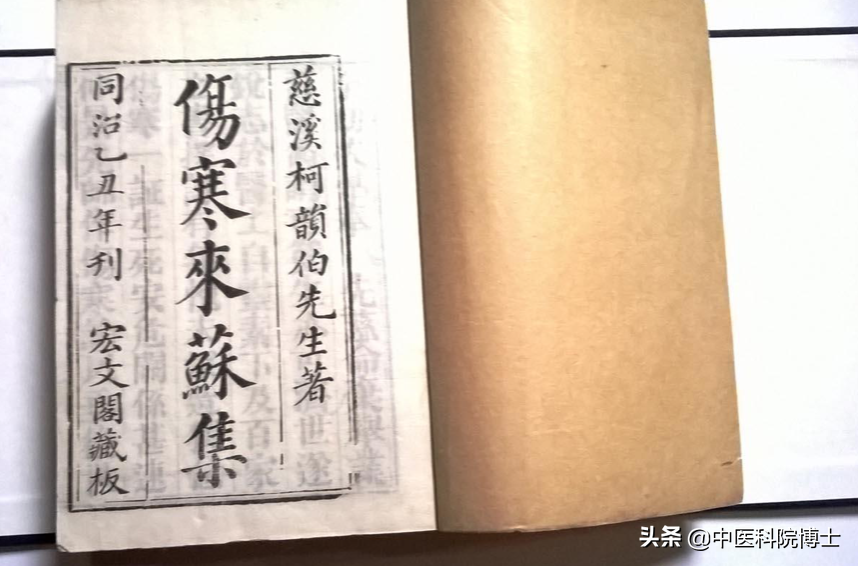 慈溪柯韻伯先生著
傷寒來蘇集
同治乙丑年刋 宏文閣藏板
头条 @中医科院博士